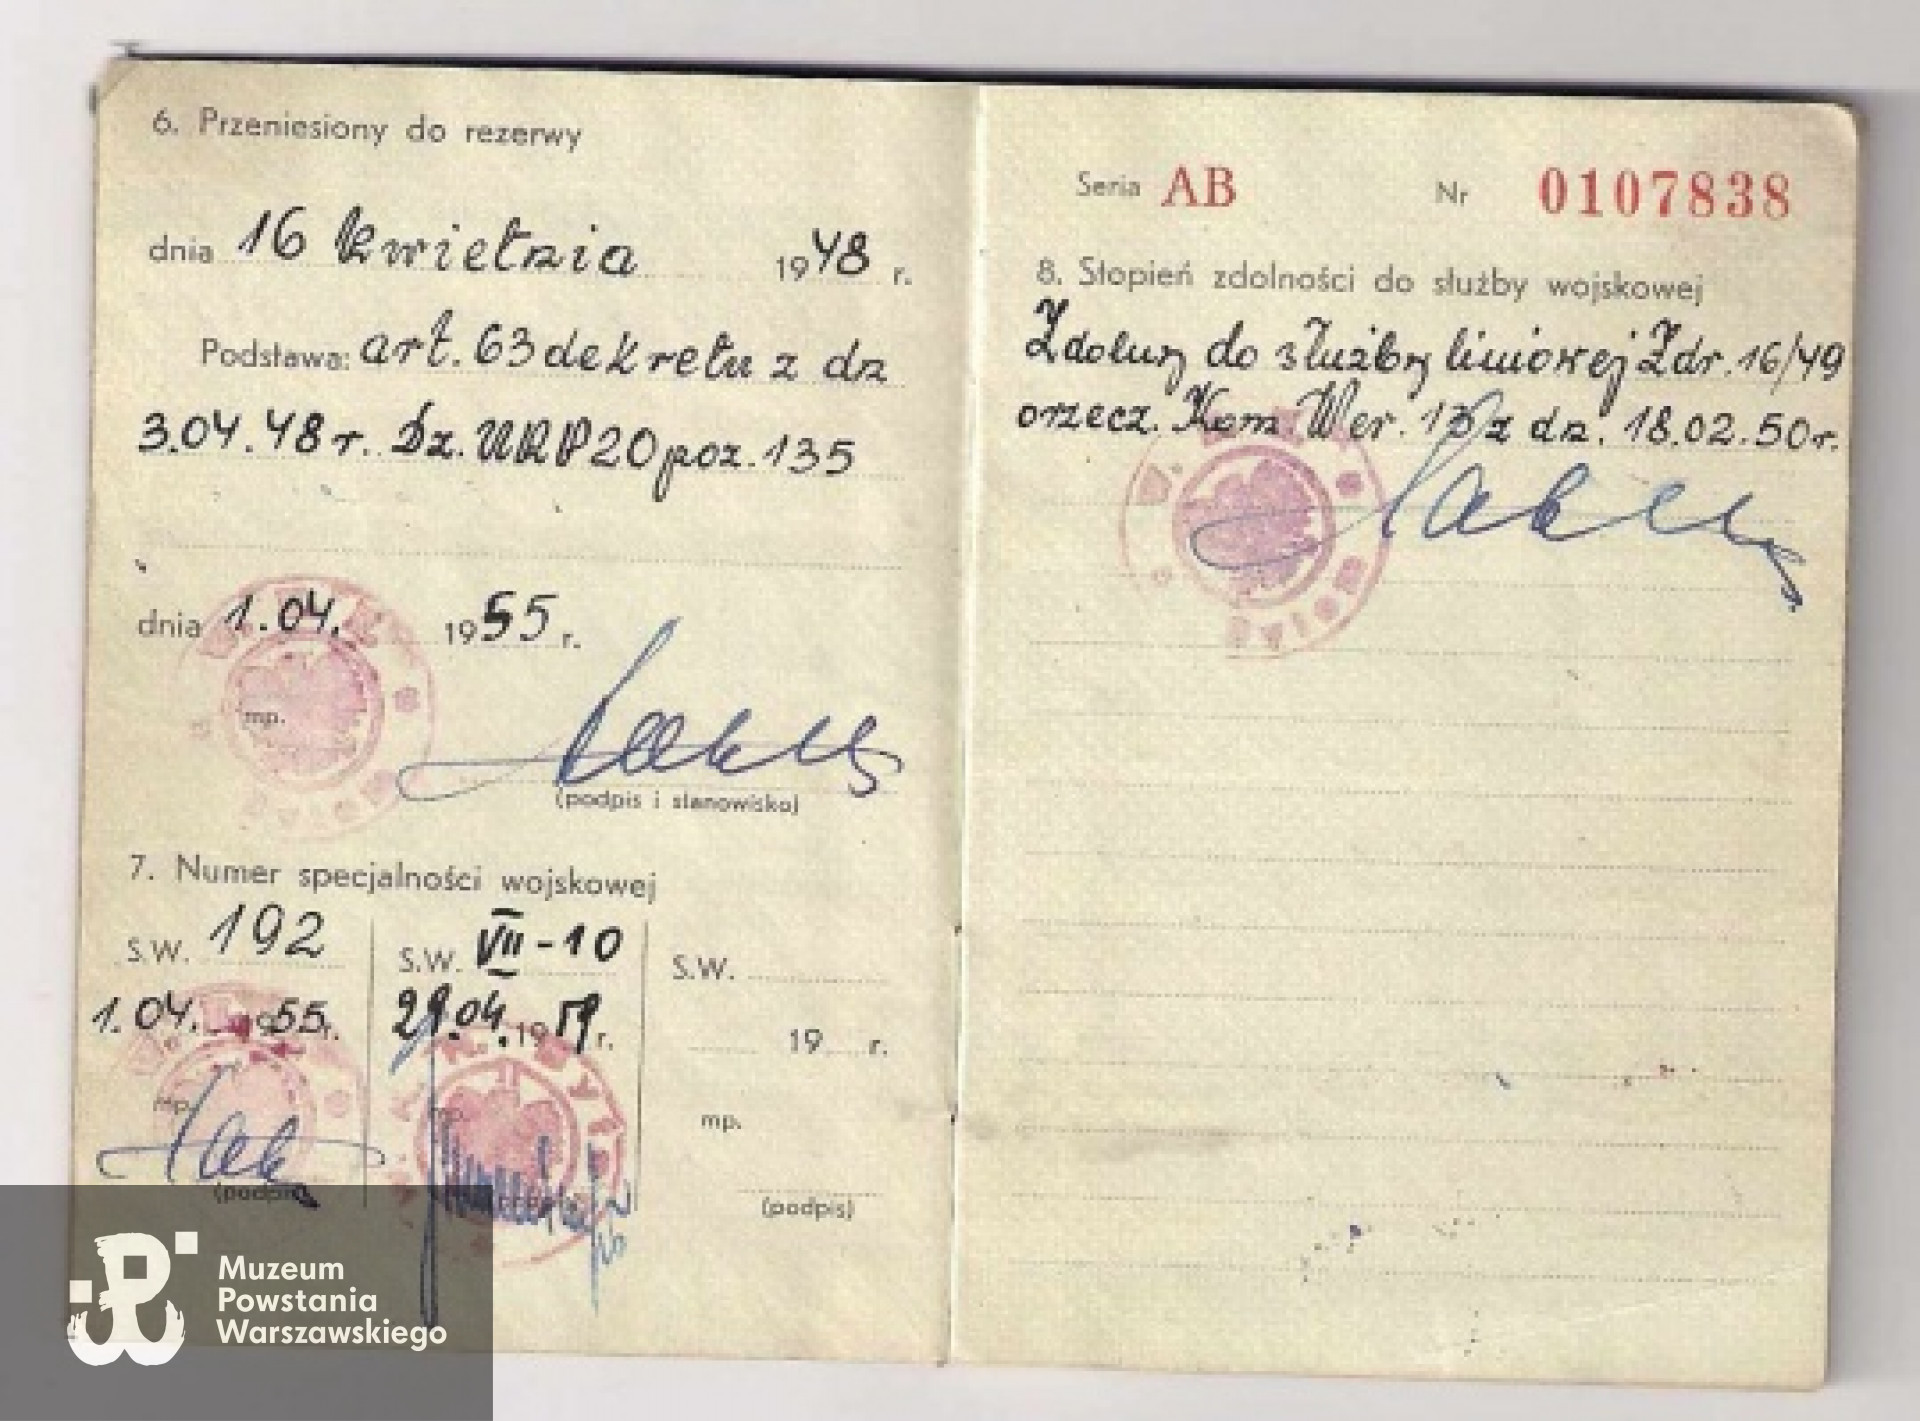 6. Przeniesiony do rezerwy
dnia 16 kwietnia 1948 r.
Podstawa: art. 63 dekretu z dn
3.04.48 r. Dz. URP 20 poz. 135
dnia 1.04. 1955 r.
mp.
(podpis i stanowisko)
7. Numer specjalności wojskowej
S.W. 192
1.04. 1955 r.
mp.
(podpis)
S.W. VII-10
29.04. 1959 r.
mp.
S.W.
19 r.
mp.
(podpis)
Seria AB Nr 0107838
8. Stopień zdolności do służby wojskowej
Zdolny do służby liniowej Zdr. 16/49
orzecz. Kom Wer. z dn. 18.02.50 r.
Bytom
Muzeum
Powstania
Warszawskiego